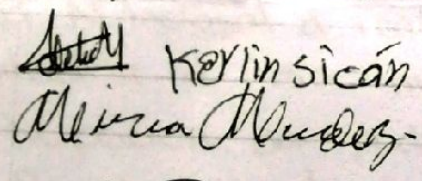 Kerlin sicán
Mirna Mendez